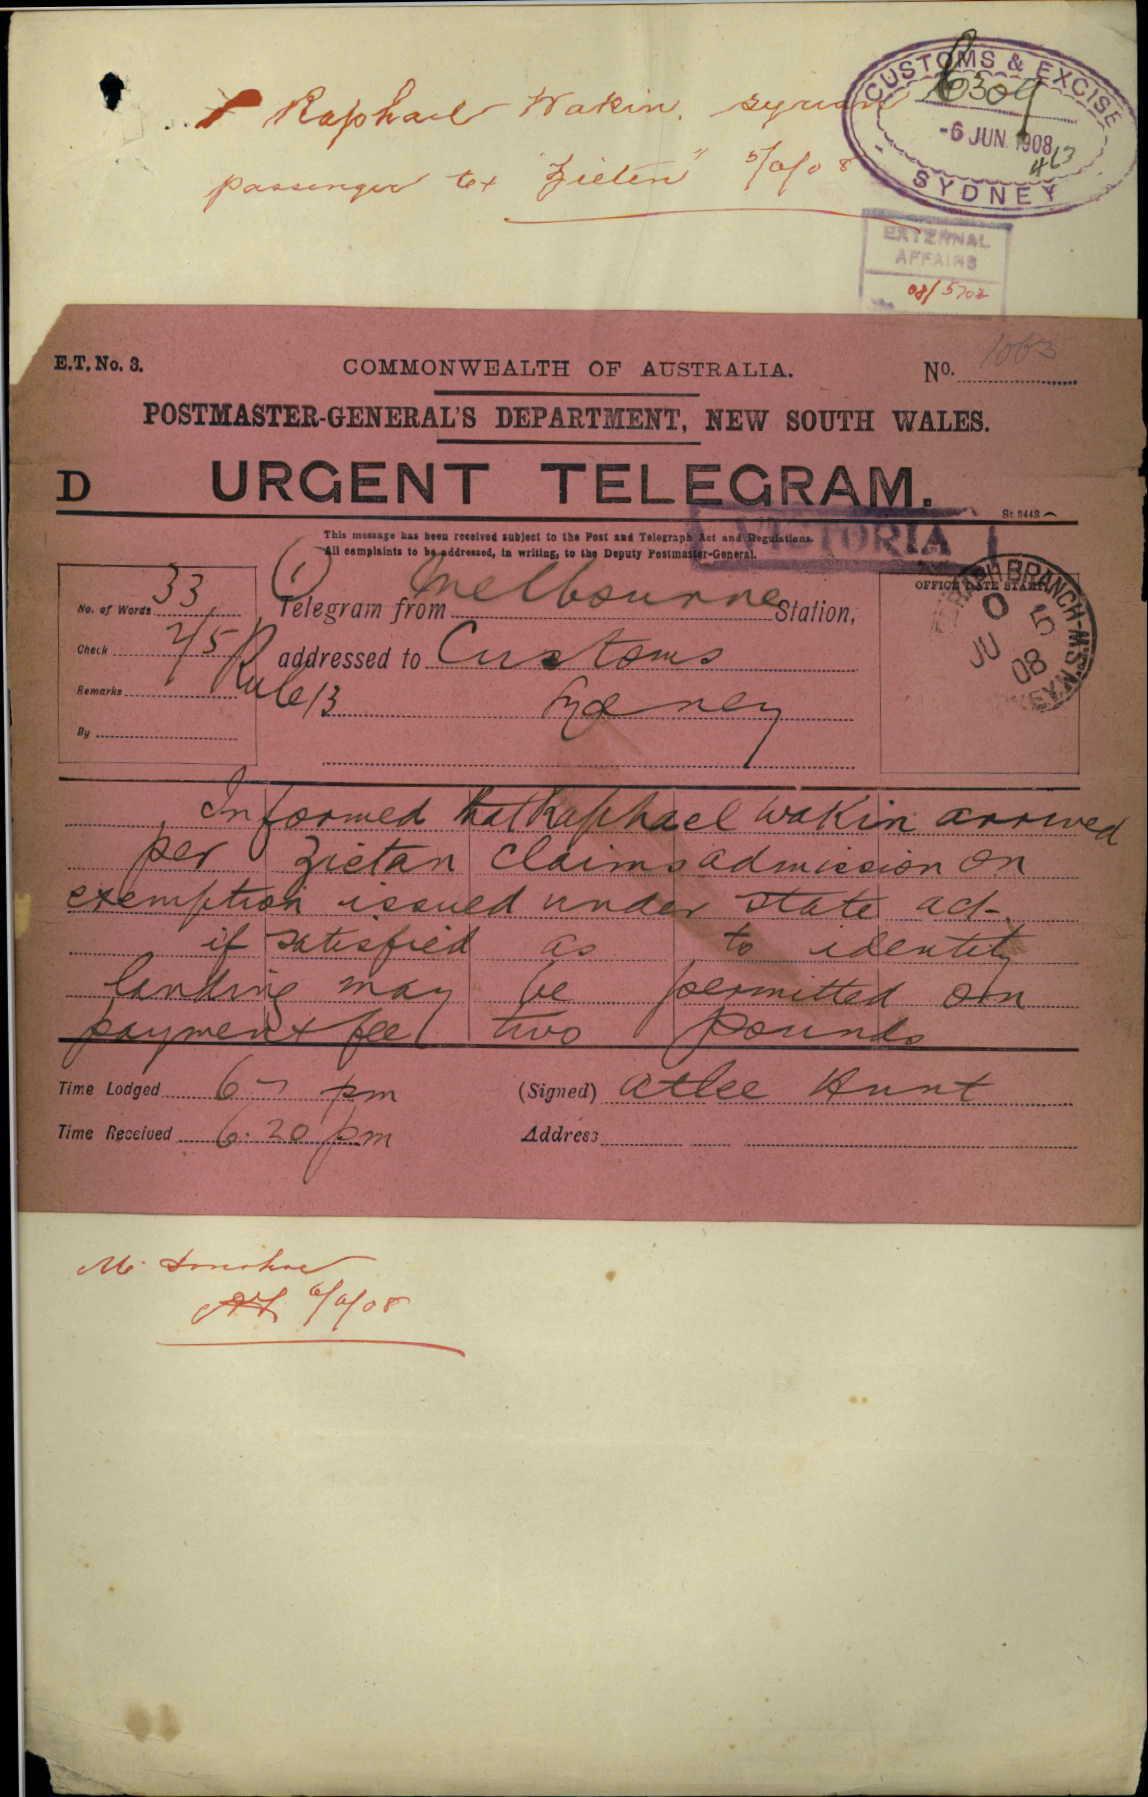 Raphael Wakin, Syrian
passenger ex "Zieten" 5/6/08
CUSTOMS & EXCISE
-6 JUN. 1908
SYDNEY
EXTERNAL
AFFAIRS
08/5702
E.T. No. 3.
COMMONWEALTH OF AUSTRALIA.
No. 1063
POSTMASTER-GENERAL'S DEPARTMENT, NEW SOUTH WALES.
D URGENT TELEGRAM.
St. 8448
This message has been received subject to the Post and Telegraph Act and Regulations.
All complaints to be addressed, in writing, to the Deputy Postmaster-General.
VICTORIA
No. of Words 33
Check 2/5
Remarks
By
Rule 13
(1)
Telegram from Melbourne Station,
addressed to Customs
Sydney
OFFICE DATE STAMP
BRANCH-N.S.W.
0 5
JU 08
Informed that Raphael Wakin arrived
per Zietan claims admission on
exemption issued under state act.
if satisfied as to identity
landing may be permitted on
payment fee two pounds
Time Lodged 6 7 pm
(Signed) Atlee Hunt
Time Received 6.20 pm
Address
Mr. Donohoe
6/6/08